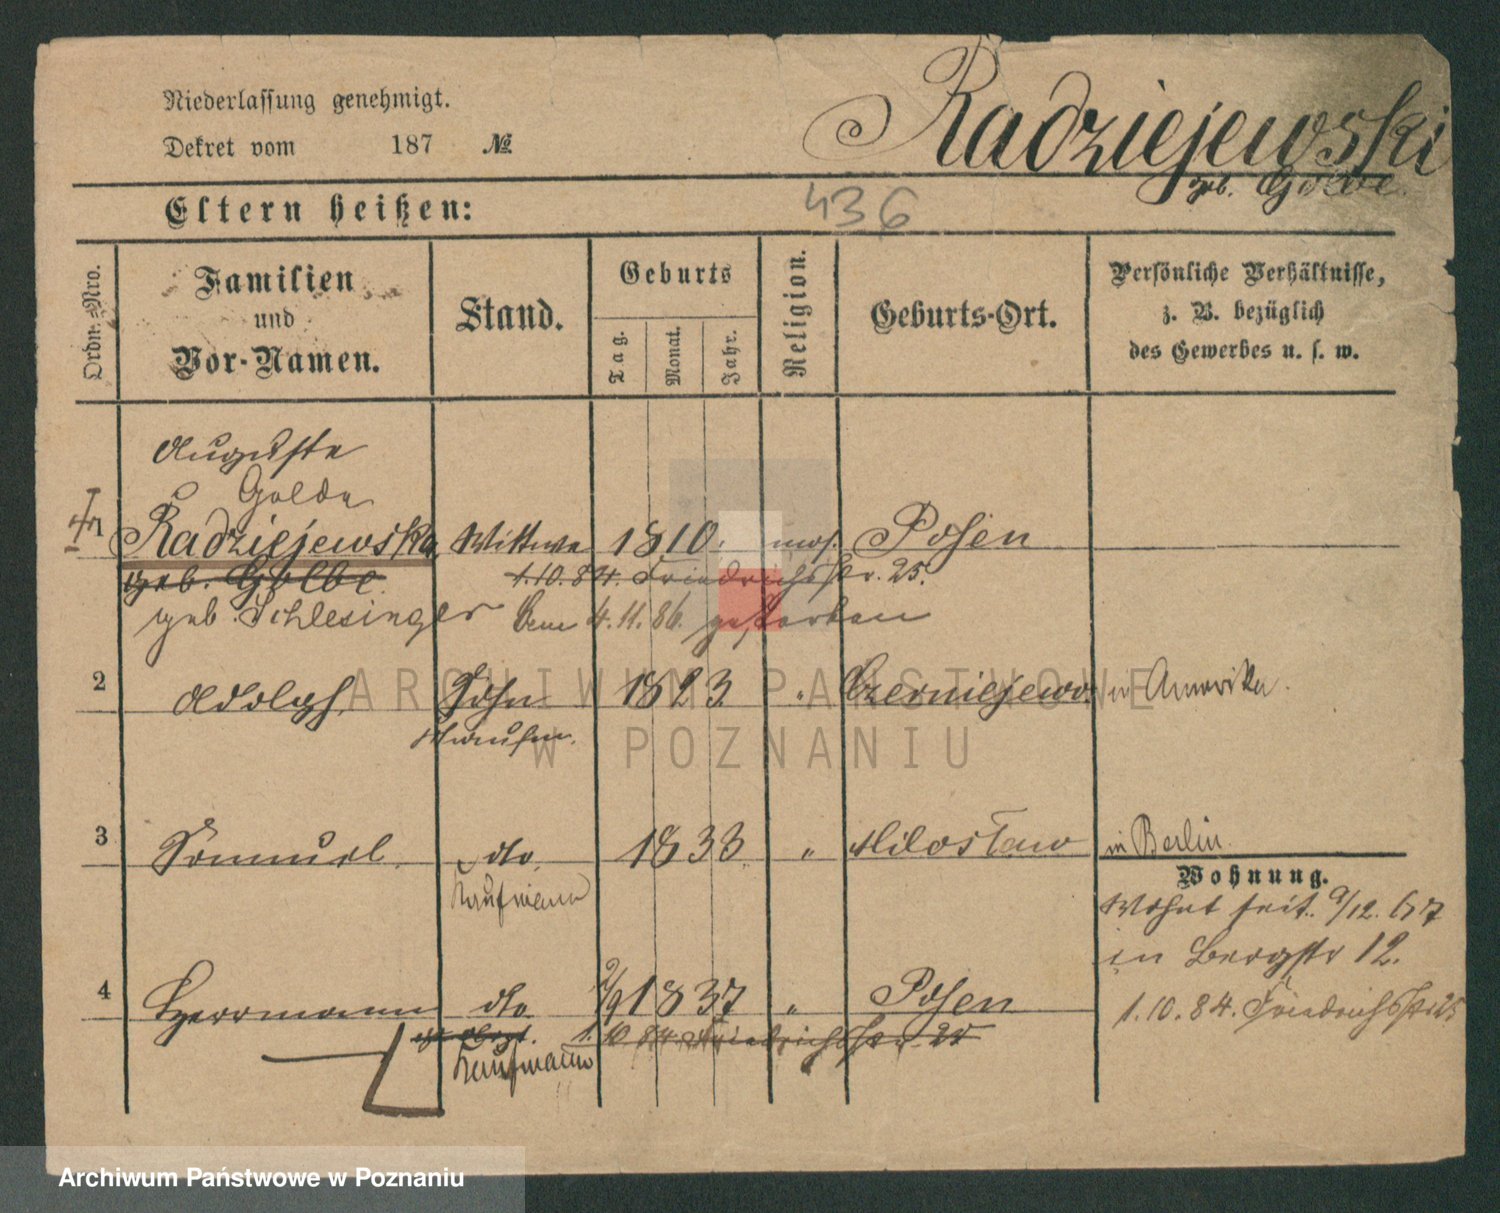 Niederlassung genehmigt.
Dekret vom 187 №
Radziejewski
geb. Golde.
436
Eltern heißen:
Ordn.-Nro.
Familien
und
Vor-Namen.
Stand.
Geburts
Tag.
Monat.
Jahr.
Religion.
Geburts-Ort.
Persönliche Verhältnisse,
z. B. bezüglich
des Gewerbes u. s. w.
Auguste
Golde
1 Radziejewska Wittwe 1810. mos. Posen
geb. Golde 1.10.84. Friedrichsstr. 25.
geb. Schlesinger 4.11.86. gestorben
2 Adolph Sohn 1823 " Czerniejewo in Amerika.
3 Samuel. dto. 1833 " Miloslaw in Berlin.
Kaufmann
Wohnung.
Wohnt seit 9/12. 67
in Bergstr 12.
4 Herrmann dto 2/9 1837 " Posen
1.10.84. Friedrichsstr 25
1.10.84. Friedrichsstr. 25
Kaufmann
ARCHIWUM PAŃSTWOWE
W POZNANIU
Archiwum Państwowe w Poznaniu